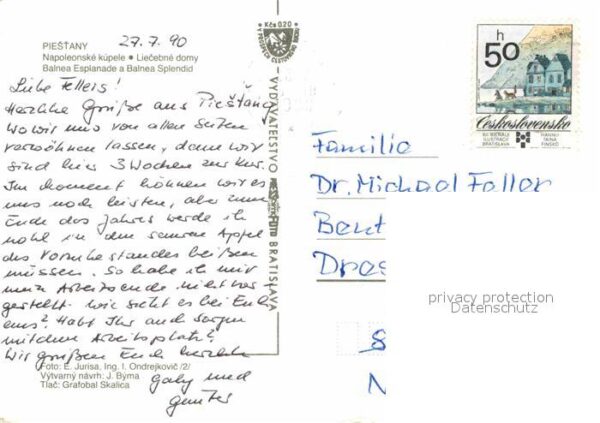 27.7.90
PIEŠŤANY
Napoleonské kúpele • Liečebné domy
Balnea Esplanade a Balnea Splendid
Kčs 0,20
Liebe Fellers!
Herzliche Grüße aus Piešťany,
wo wir uns von allen Seiten
verwöhnen lassen, denn wir
sind hier 3 Wochen zur Kur.
Im Moment können wir es
uns noch leisten, aber zum
Ende des Jahres werde ich
wohl in den sauren Apfel
des Vorruhestandes beißen
müssen. So habe ich mir
mein Arbeitsende nicht vor-
gestellt. Wie sieht es bei Euch
aus? Habt Ihr auch Sorgen
mit dem Arbeitsplatz?
Wir grüßen Euch herzlich
Gaby und
Günter
Foto: E. Jurisa, Ing. I. Ondrejkovič /2/
Výtvarný návrh: J. Býma
Tlač: Grafobal Skalica
VYDAVATEĽSTVO
BRATISLAVA
50 h
Československo
XII BIENÁLE
ILUSTRÁCIÍ
BRATISLAVA
HANNU
TAINA
FINSKO
Familie
Dr. Michael Faller
Bent
Dres
privacy protection
Datenschutz